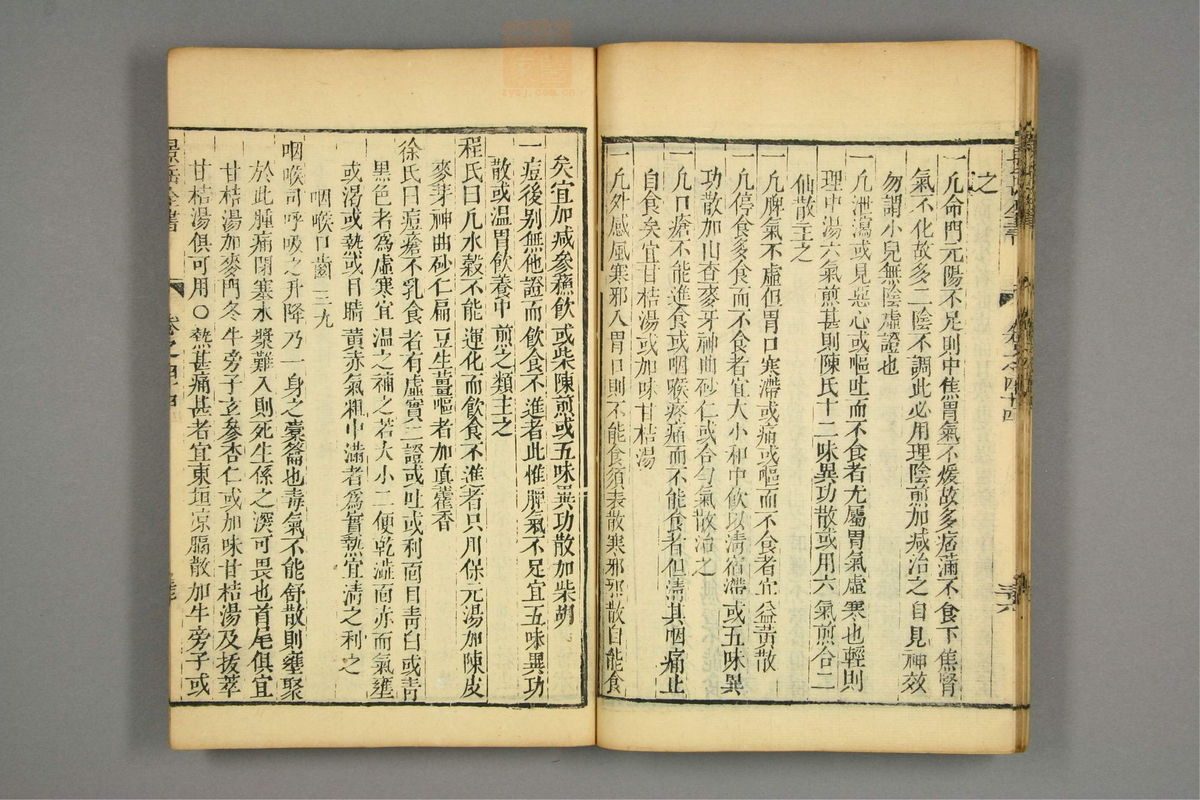 之
一凢命門元陽不足則中焦胃氣不煖故多痞滿不食下焦腎
氣不化故多二陰不調此必用理陰煎加減治之自見神效
勿謂小兒無陰虛證也
一凢泄瀉或見惡心或嘔吐而不食者尤屬胃氣虛寒也輕則
理中湯六氣煎甚則陳氏十二味異功散或用六氣煎合二
仙散主之
一凢脾氣不虛但胃口寒滯或痛或嘔而不食者宜益黃散
一凢停食多食而不食者宜大小和中飲以清宿滯或五味異
功散加山查麥牙神曲砂仁或合勻氣散治之
一凢口瘡不能進食或咽喉疼痛而不能食者但清其咽痛止
自食矣宜甘桔湯或加味甘桔湯
一凢外感風寒邪入胃口則不能食須表散寒邪邪散自能食
矣宜加減參蘇飲或柴陳煎或五味異功散加柴胡
一痘後别無他證而飲食不進者此惟脾氣不足宜五味異功
散或温胃飲養中煎之類主之
程氏曰凢水穀不能運化而飲食不進者只用保元湯加陳皮
麥芽神曲砂仁扁豆生薑嘔者加真藿香
徐氏曰痘瘡不乳食者有虛實二證或吐或利面目青白或青
黑色者爲虛寒宜温之補之若大小二便乾澁面赤而氣壅
或渴或熱或目睛黃赤氣粗中滿者爲實熱宜清之利之
咽喉口齒三九
咽喉司呼吸之升降乃一身之橐籥也毒氣不能舒散則壅聚
於此腫痛閉塞水漿難入則死生係之深可畏也首尾俱宜
甘桔湯加麥門冬牛旁子玄參杏仁或加味甘桔湯及拔萃
甘桔湯俱可用〇熱甚痛甚者宜東垣凉膈散加牛旁子或
景岳全書
卷之四十四
zysj.com.cn